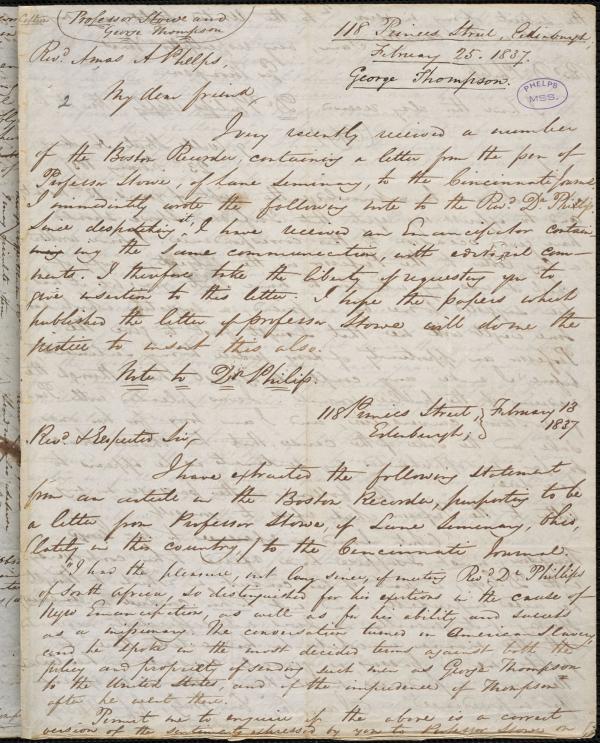 Professor Stowe and
George Thompson
118 Princes Street, Edinburgh,
February 25. 1837.
George Thompson.
Rev.d Amos A Phelps,
PHELPS
MSS.
2
My dear friend,
I very recently received a number
of the Boston Recorder, containing a letter from the pen of
Professor Stowe, of Lane Seminary, to the Cincinnati Journal.
I immediately wrote the following note to the Rev.d Dr Philip.
Since despatching it, I have received an Emancipator contain-
ing the same communication, with editorial com-
ments. I therefore take the liberty of requesting you to
give insertion to this letter. I hope the papers which
published the letter of professor Stowe will do me the
justice to insert this also.
Note to Dr Philip.
118 Princes Street, February 13
Edinburgh, 1837
Rev.d & Respected Sir,
I have extracted the following statement
from an article in the Boston Recorder, purporting to be
a letter from Professor Stowe, of Lane Seminary, Ohio,
(lately in this country,) to the Cincinnati Journal.
"I had the pleasure, not long since, of meeting Rev.d Dr Phillips
of South Africa, so distinguished for his exertions in the cause of
Negro Emancipation, as well as for his ability and success
as a missionary. The conversation turned on American Slavery
and he spoke in the most decided terms against both the
policy and propriety of sending such men as George Thompson
to the United States, and of the imprudence of Thompson
after he went there."
Permit me to enquire if the above is a correct
version of the sentiments expressed by you to Professor Stowe or